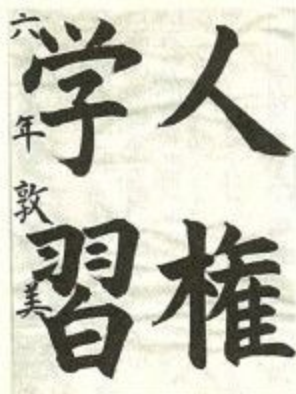 人権
学習
六年 敦美